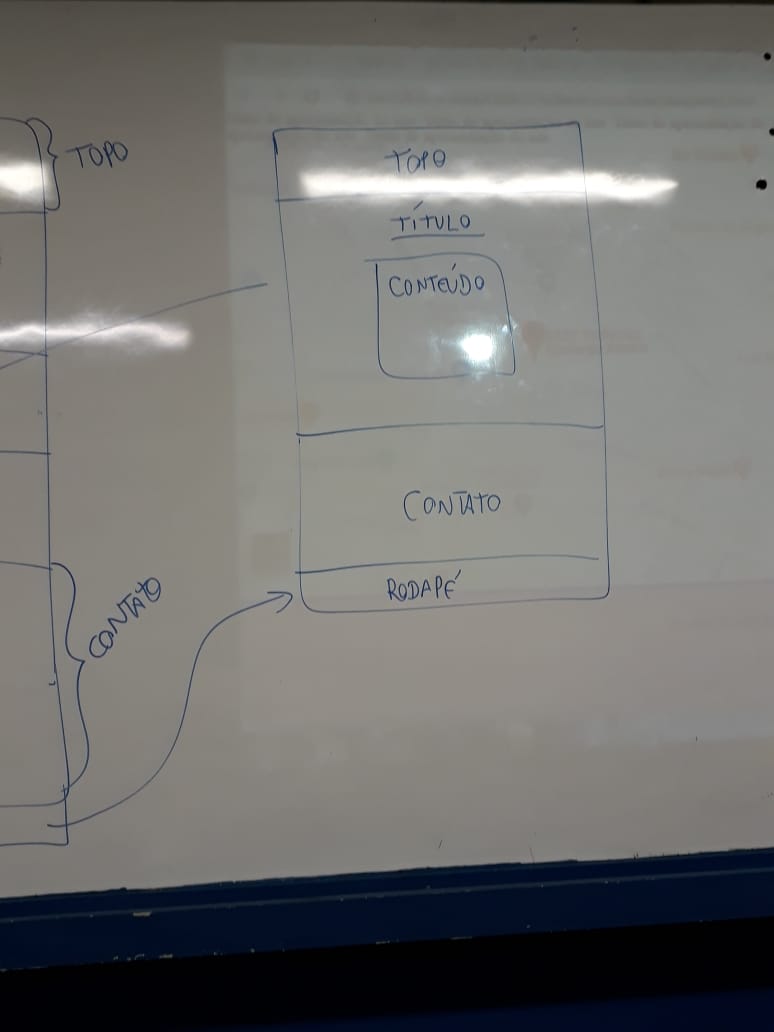 TOPO
CONTATO
TOPO
TÍTULO
CONTEÚDO
CONTATO
RODAPÉ